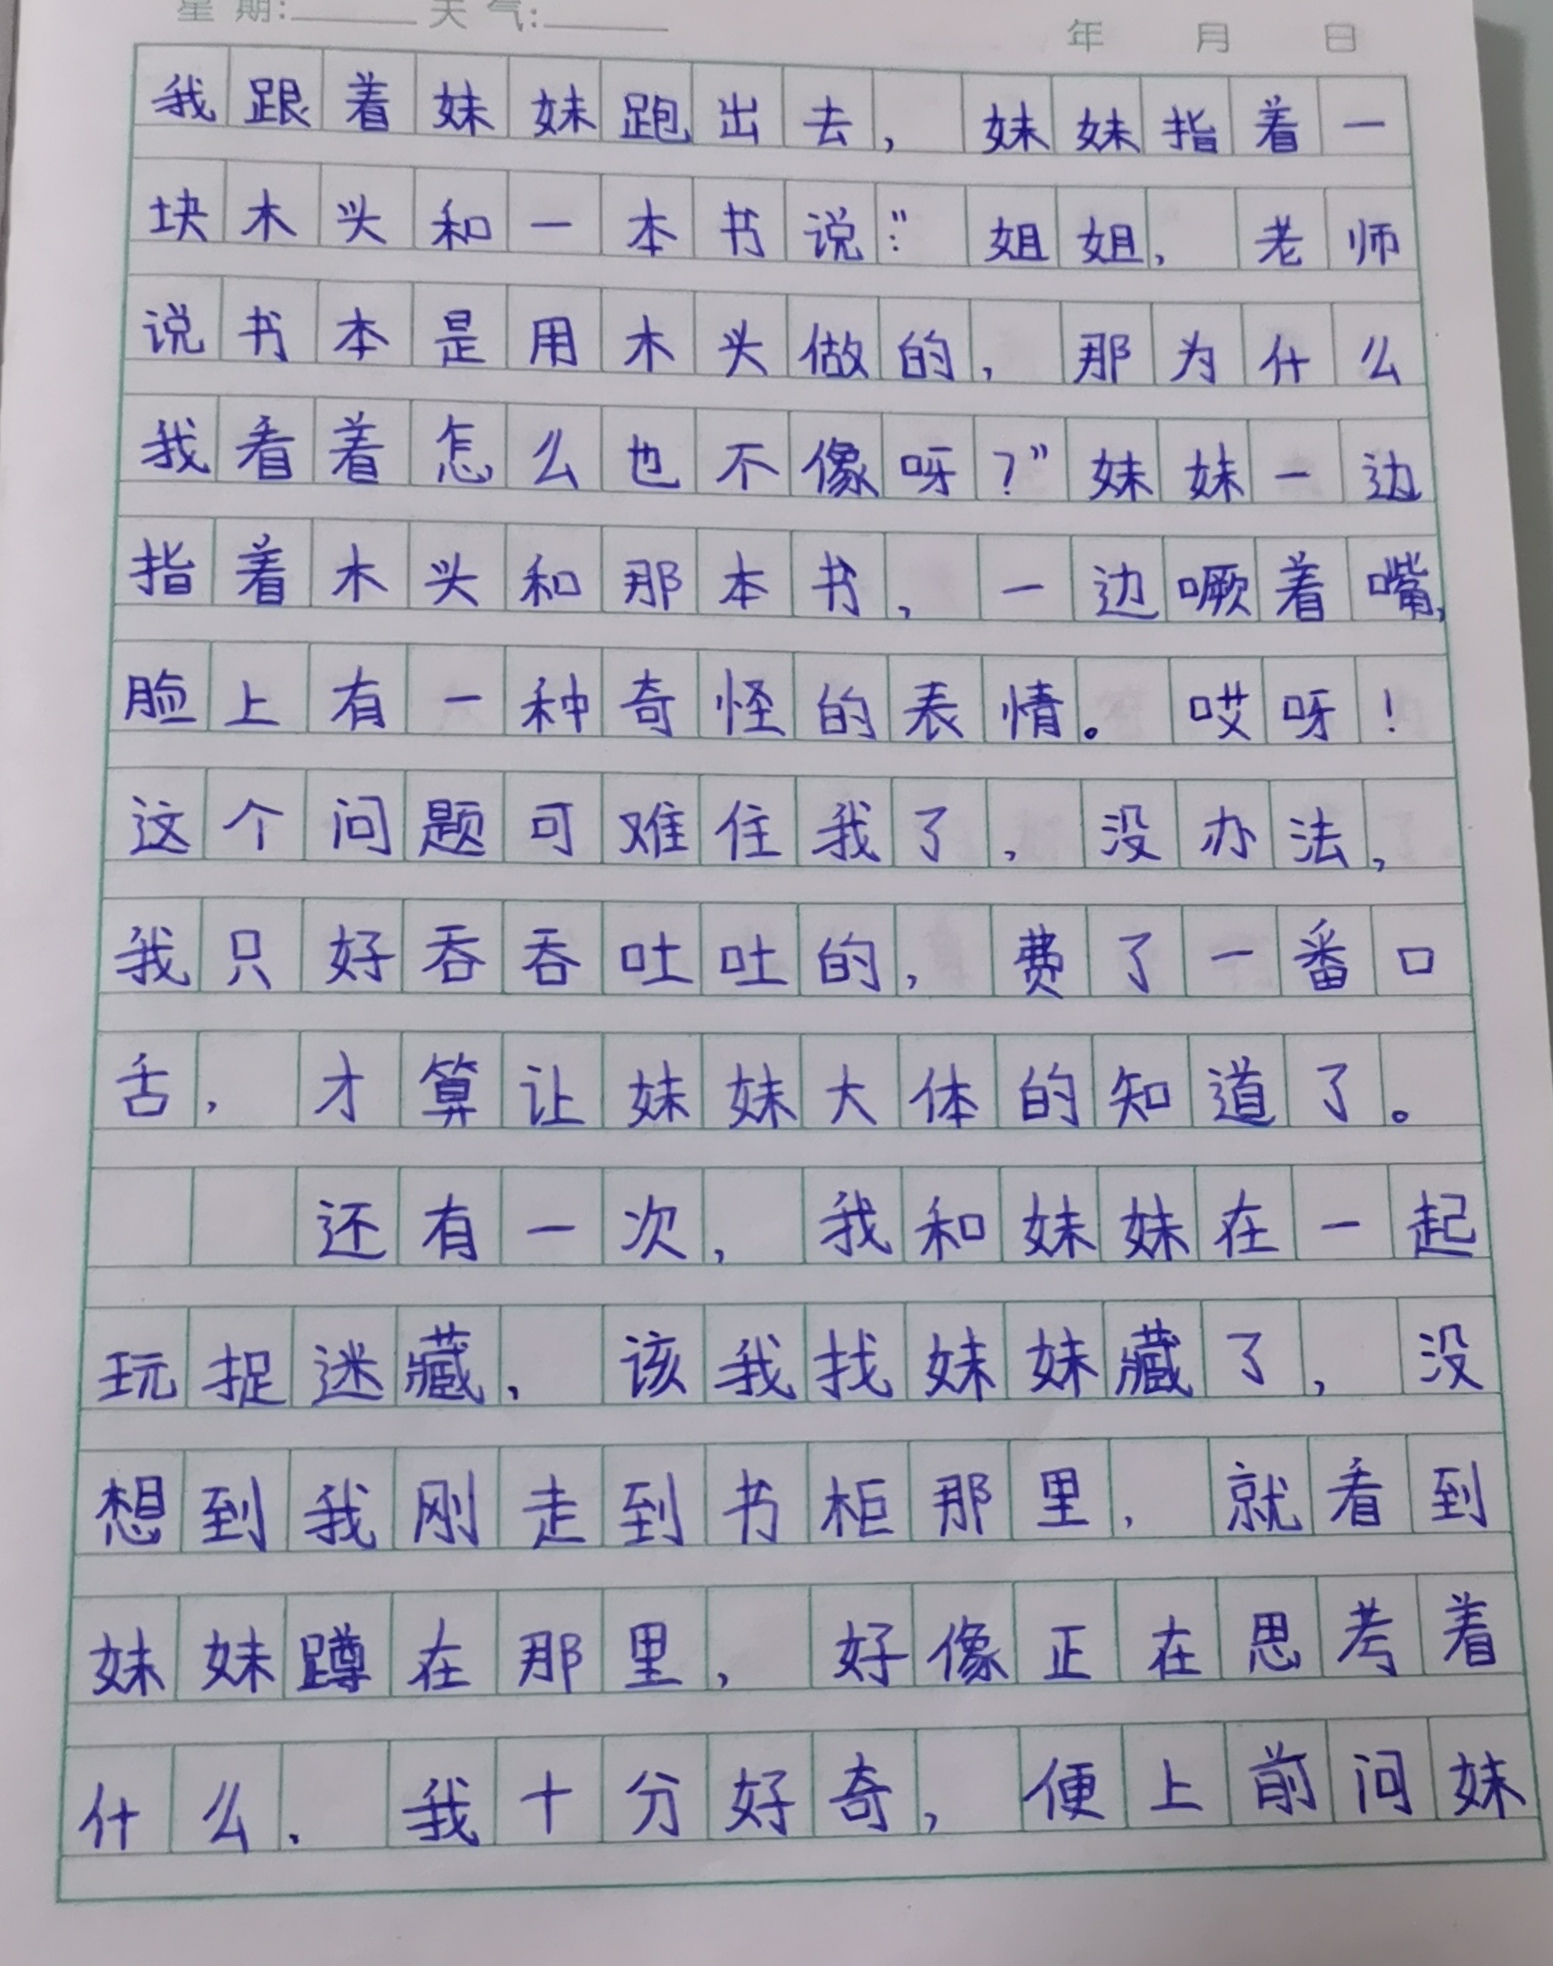 星期:______天气:______ 年 月 日
我跟着妹妹跑出去，妹妹指着一
块木头和一本书说:"姐姐，老师
说书本是用木头做的，那为什么
我看着怎么也不像呀?"妹妹一边
指着木头和那本书，一边噘着嘴,
脸上有一种奇怪的表情。哎呀!
这个问题可难住我了，没办法，
我只好吞吞吐吐的，费了一番口
舌，才算让妹妹大体的知道了。
还有一次，我和妹妹在一起
玩捉迷藏，该我找妹妹藏了，没
想到我刚走到书柜那里，就看到
妹妹蹲在那里，好像正在思考着
什么，我十分好奇，便上前问妹